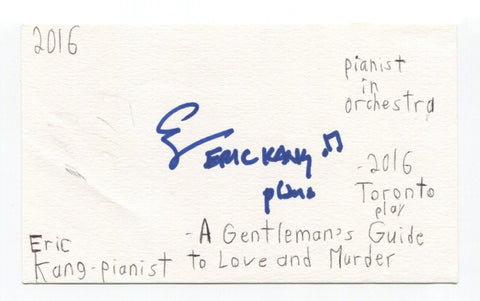 2016
pianist
in
orchestra
ERIC KANG
piano
-2016
Toronto
play
-A Gentleman's Guide
to Love and Murder
Eric
Kang-pianist